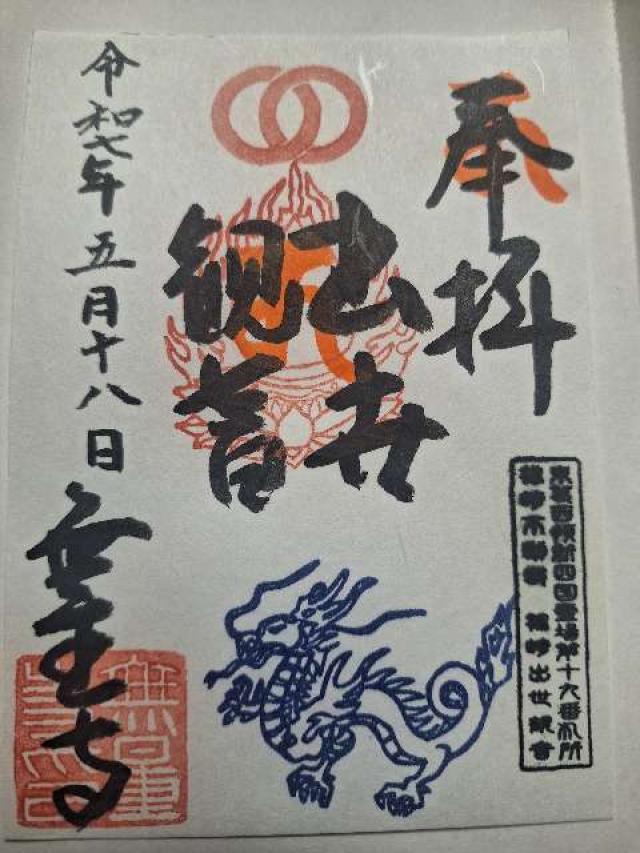 奉拝
出世
観音
令和七年五月十八日
無量寺
東葛西領新四国霊場第十九番札所
出世観音